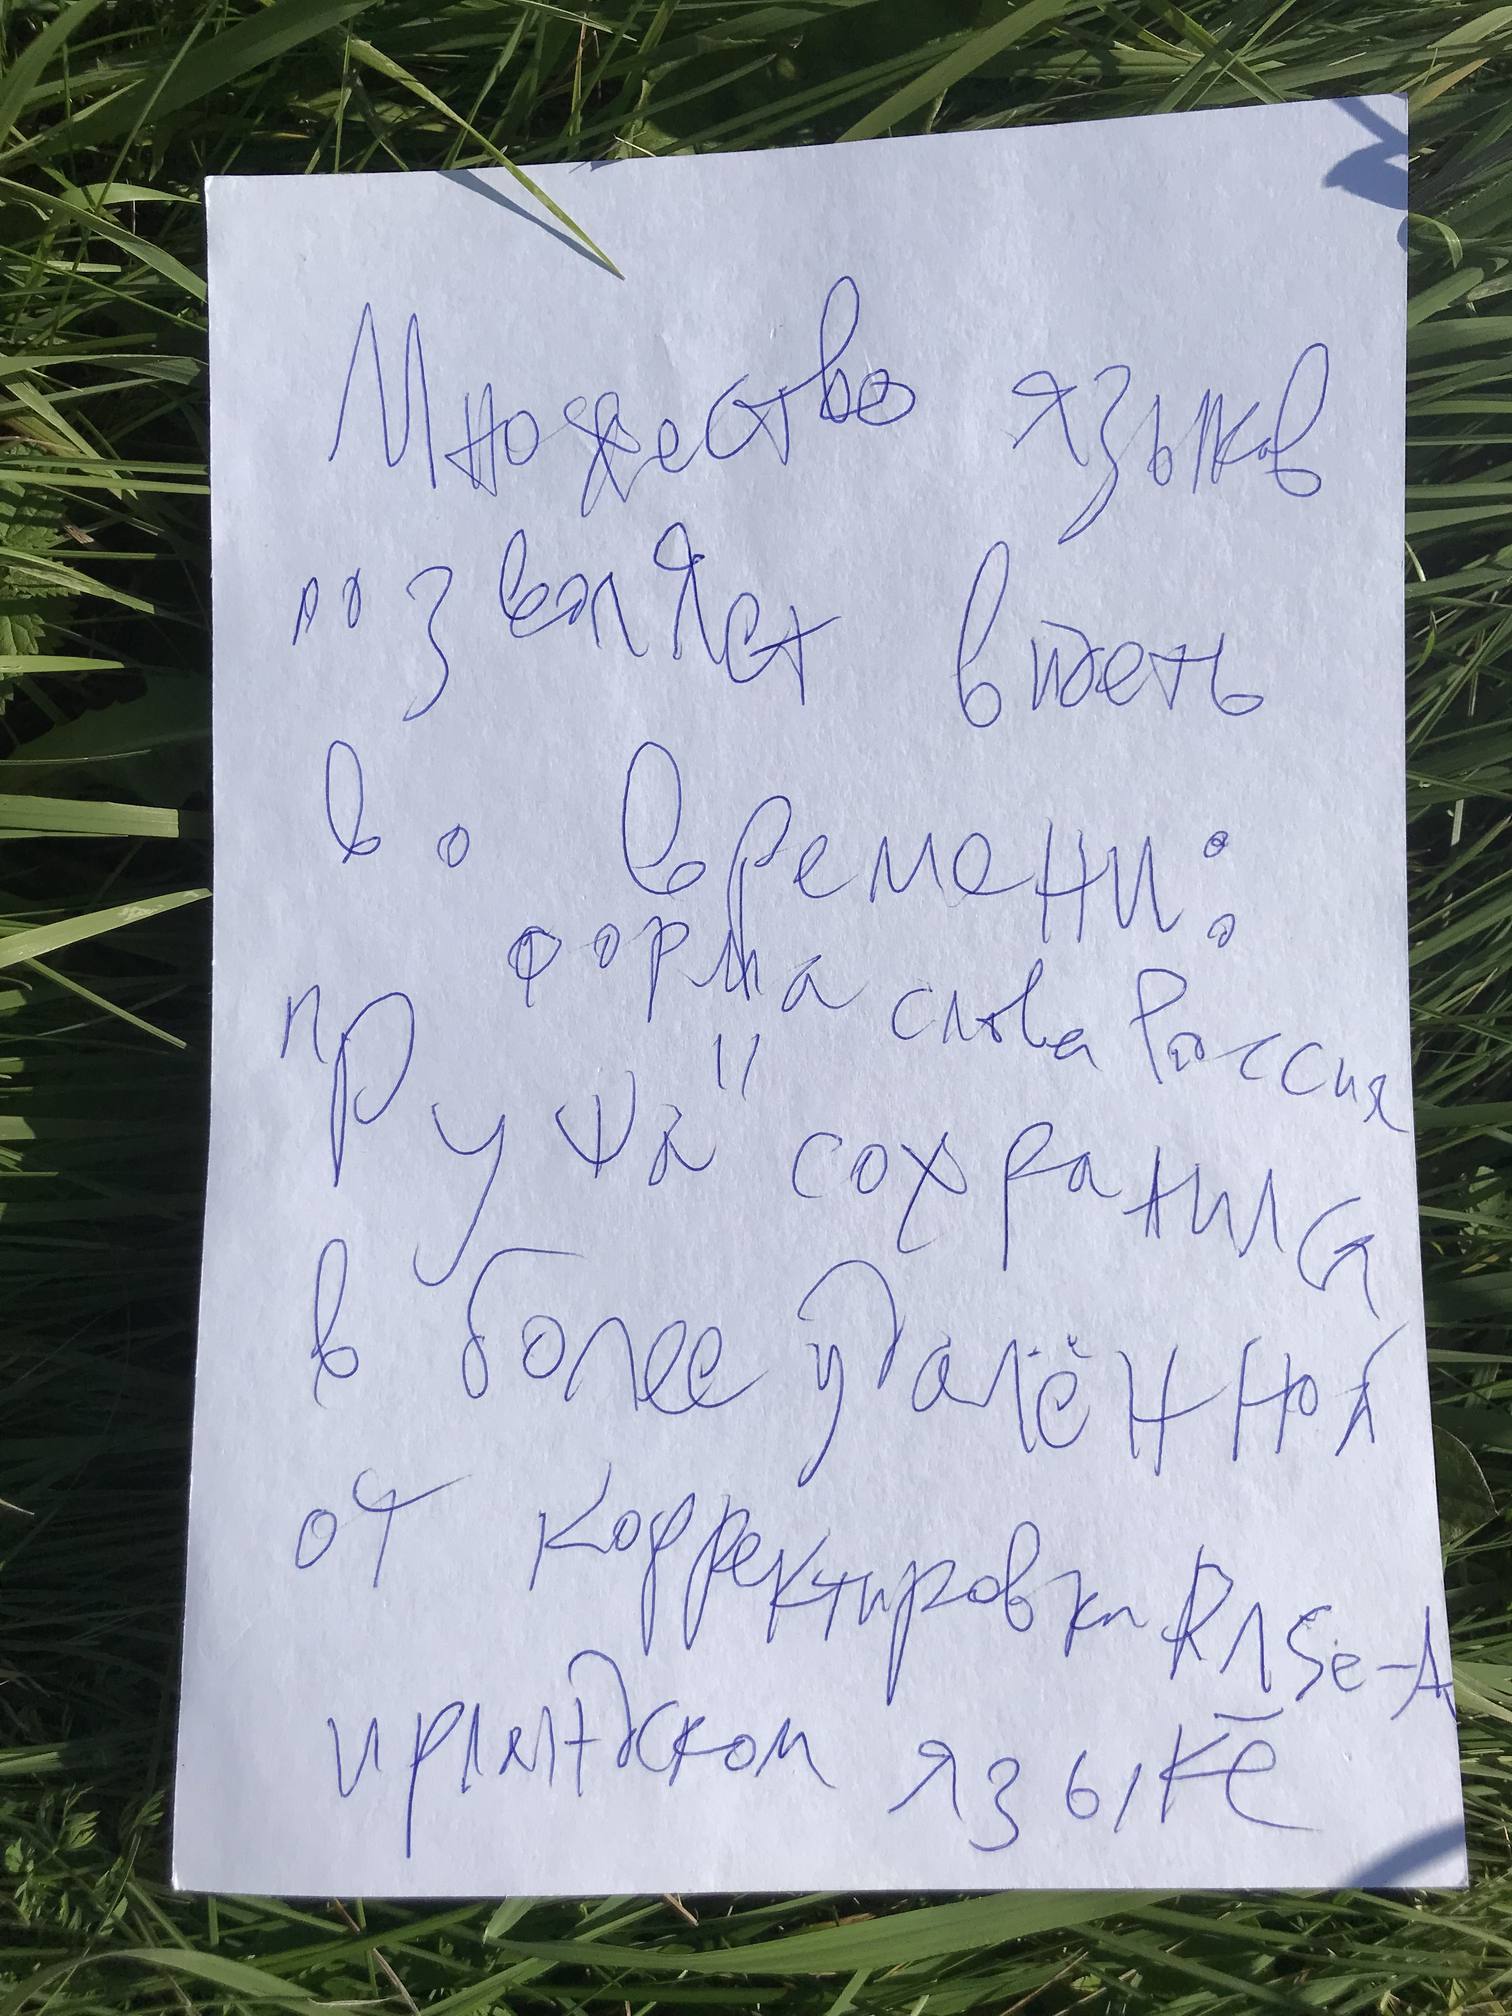 Множество языков
позволяет видеть
во времени:
форма слова Россия
сохранился
в более удалённой
от корректировки
ирландском языке